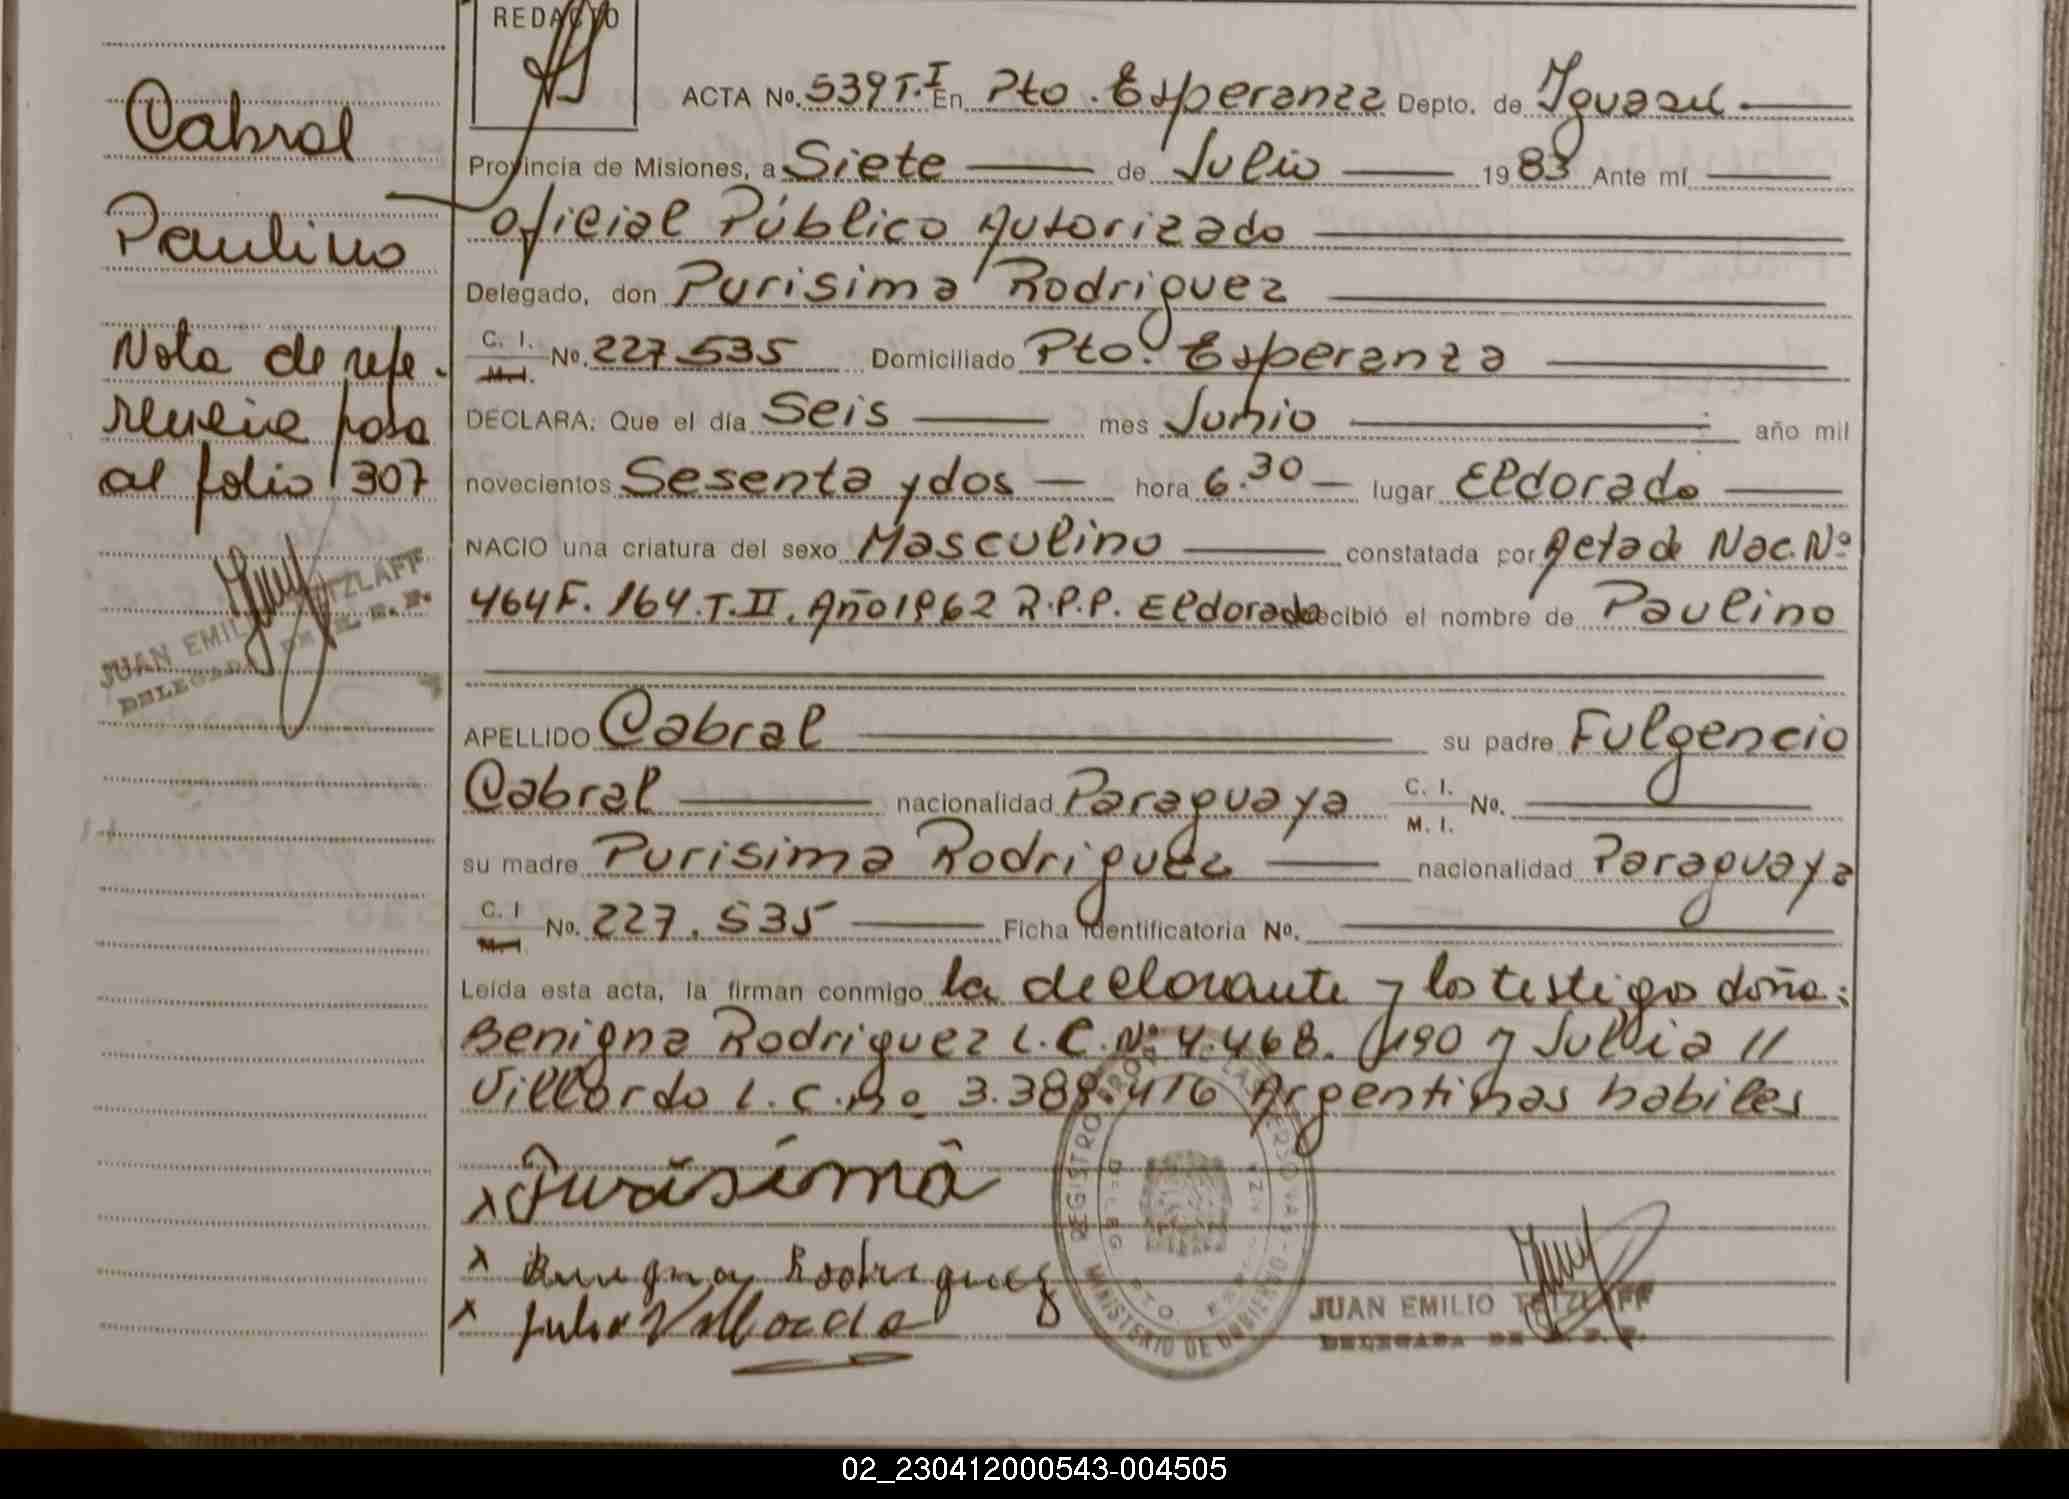 REDACTO
ACTA Nº. 539 T.I En Pto. Esperanza Depto. de Iguazú
Provincia de Misiones, a Siete de Julio 1983 Ante mí
Oficial Público Autorizado
Delegado, don Purisima Rodriguez
C. I. M. I. Nº. 227.535 Domiciliado Pto. Esperanza
DECLARA: Que el día Seis mes Junio año mil
novecientos Sesenta y dos hora 6.30 lugar Eldorado
NACIO una criatura del sexo Masculino constatada por Acta de Nac. Nº
464 F. 164. T. II. Año 1962 R.P.P. Eldorado recibió el nombre de Paulino
APELLIDO Cabral su padre Fulgencio
Cabral nacionalidad Paraguaya C. I. M. I. Nº.
su madre Purisima Rodriguez nacionalidad Paraguaya
C. I. M. I. Nº. 227.535 Ficha Identificatoria Nº.
Leída esta acta, la firman conmigo la declarante y los testigos doña:
Benigna Rodriguez L.C. Nº 4.468.190 y Julia
Villordo L.C. Nº 3.388.416 Argentinas habiles
x Purisima
x Benigna Rodriguez
x Julia Villordo
REGISTRO
MINISTERIO DE GOBIERNO
PTO.
JUAN EMILIO TETZLAFF
Cabral
Paulino
Nota de refe-
rencia pasa
al folio 307
JUAN EMILIO TETZLAFF
02_230412000543-004505